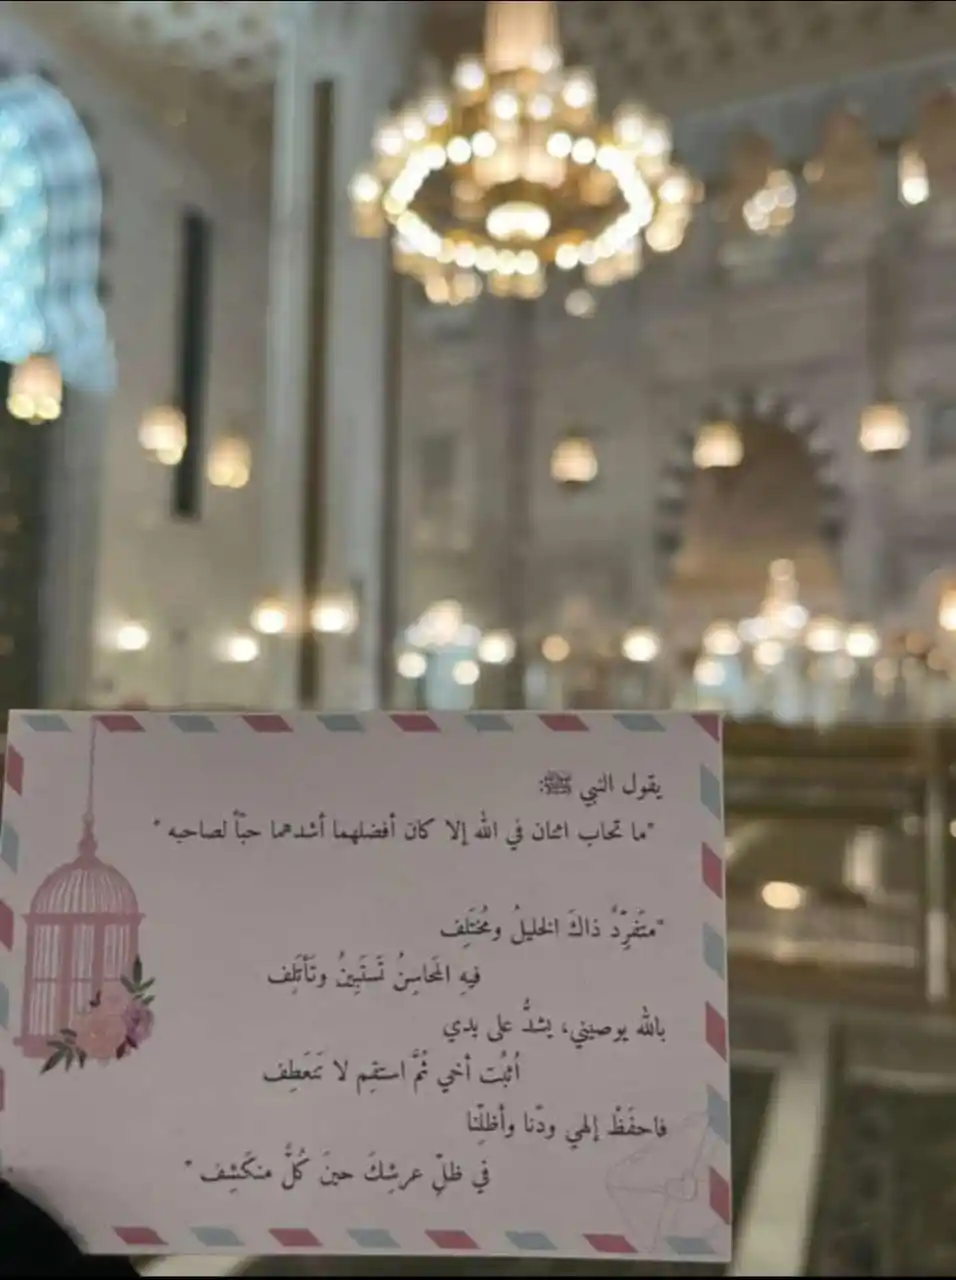 يقول النبي ﷺ:
"ما تحاب اثنان في الله إلا كان أفضلهما أشدهما حبّاً لصاحبه"
"متَفرِّدٌ ذاكَ الخليلُ ومُختَلِف
فيهِ المَحاسِنُ تَستَبِينُ وتَأتَلِف
بالله يوصيني، يشدُّ على يدي
اُثبُت أخي ثُمَّ استقِم لا تَنعَطِف
فاحفَظْ إلهي ودّنا وأظلّنا
في ظلِّ عرشِكَ حينَ كُلُّ منكَشِف"